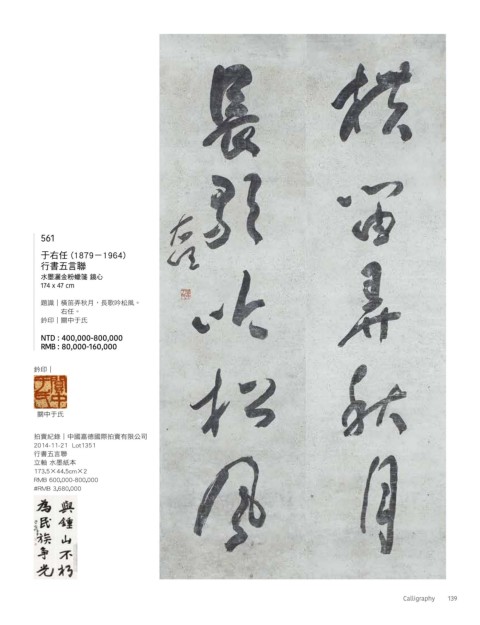 橫笛弄秋月
長歌吟松風
右任
561
于右任（1879－1964）
行書五言聯
水墨灑金粉蠟箋 鏡心
174 x 47 cm
題識｜橫笛弄秋月，長歌吟松風。
右任。
鈐印｜關中于氏
NTD : 400,000-800,000
RMB : 80,000-160,000
鈐印｜
關中于氏
關中于氏
拍賣紀錄｜中國嘉德國際拍賣有限公司
2014-11-21 Lot1351
行書五言聯
立軸 水墨紙本
173.5×44.5cm×2
RMB 600,000-800,000
#RMB 3,680,000
與鍾山不朽
為民族爭光
Calligraphy 139